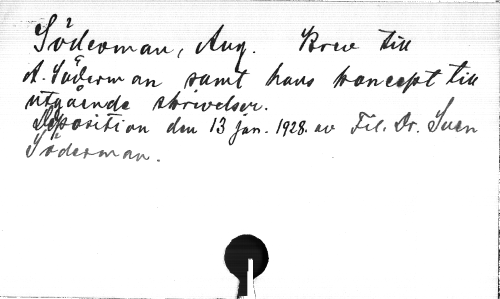 Söderman, Aug. Brev till
A. Söderman samt hans koncept till
utgående skrivelser.
Deposition den 13 jan. 1928. av Fil. Dr. Sven
Söderman.